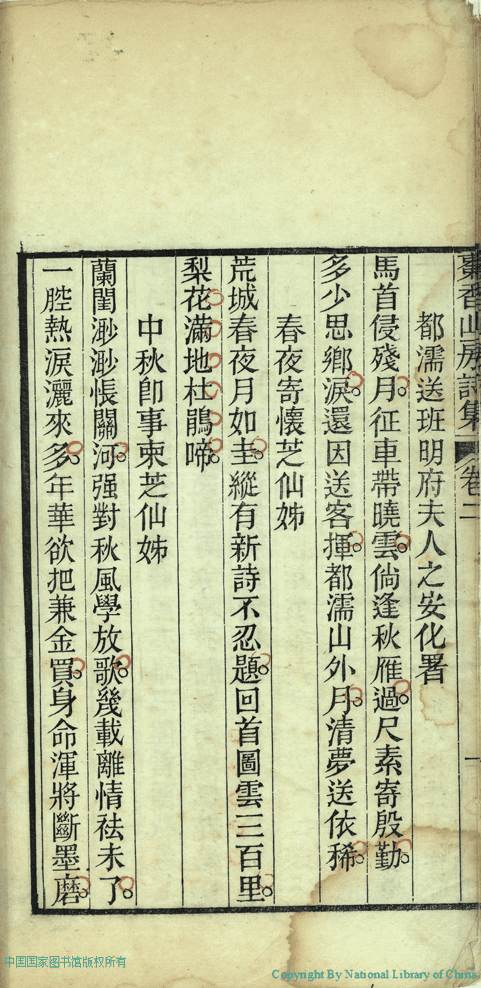 棗香山房詩集 卷二 一
都濡送班明府夫人之安化署
馬首侵殘月。征車帶曉雲。倘逢秋雁過。尺素寄殷勤。
多少思鄉淚。還因送客揮。都濡山外月。清夢送依稀。
春夜寄懷芝仙姊
荒城春夜月如圭。縱有新詩不忍題。回首圖雲三百里。
梨花滿地杜鵑啼。
中秋卽事柬芝仙姊
蘭閨渺渺悵關河。强對秋風學放歌。幾載離情袪未了。
一腔熱淚灑來多。年華欲把兼金買。身命渾將斷墨磨。
中国国家图书馆版权所有
Copyright By National Library of China